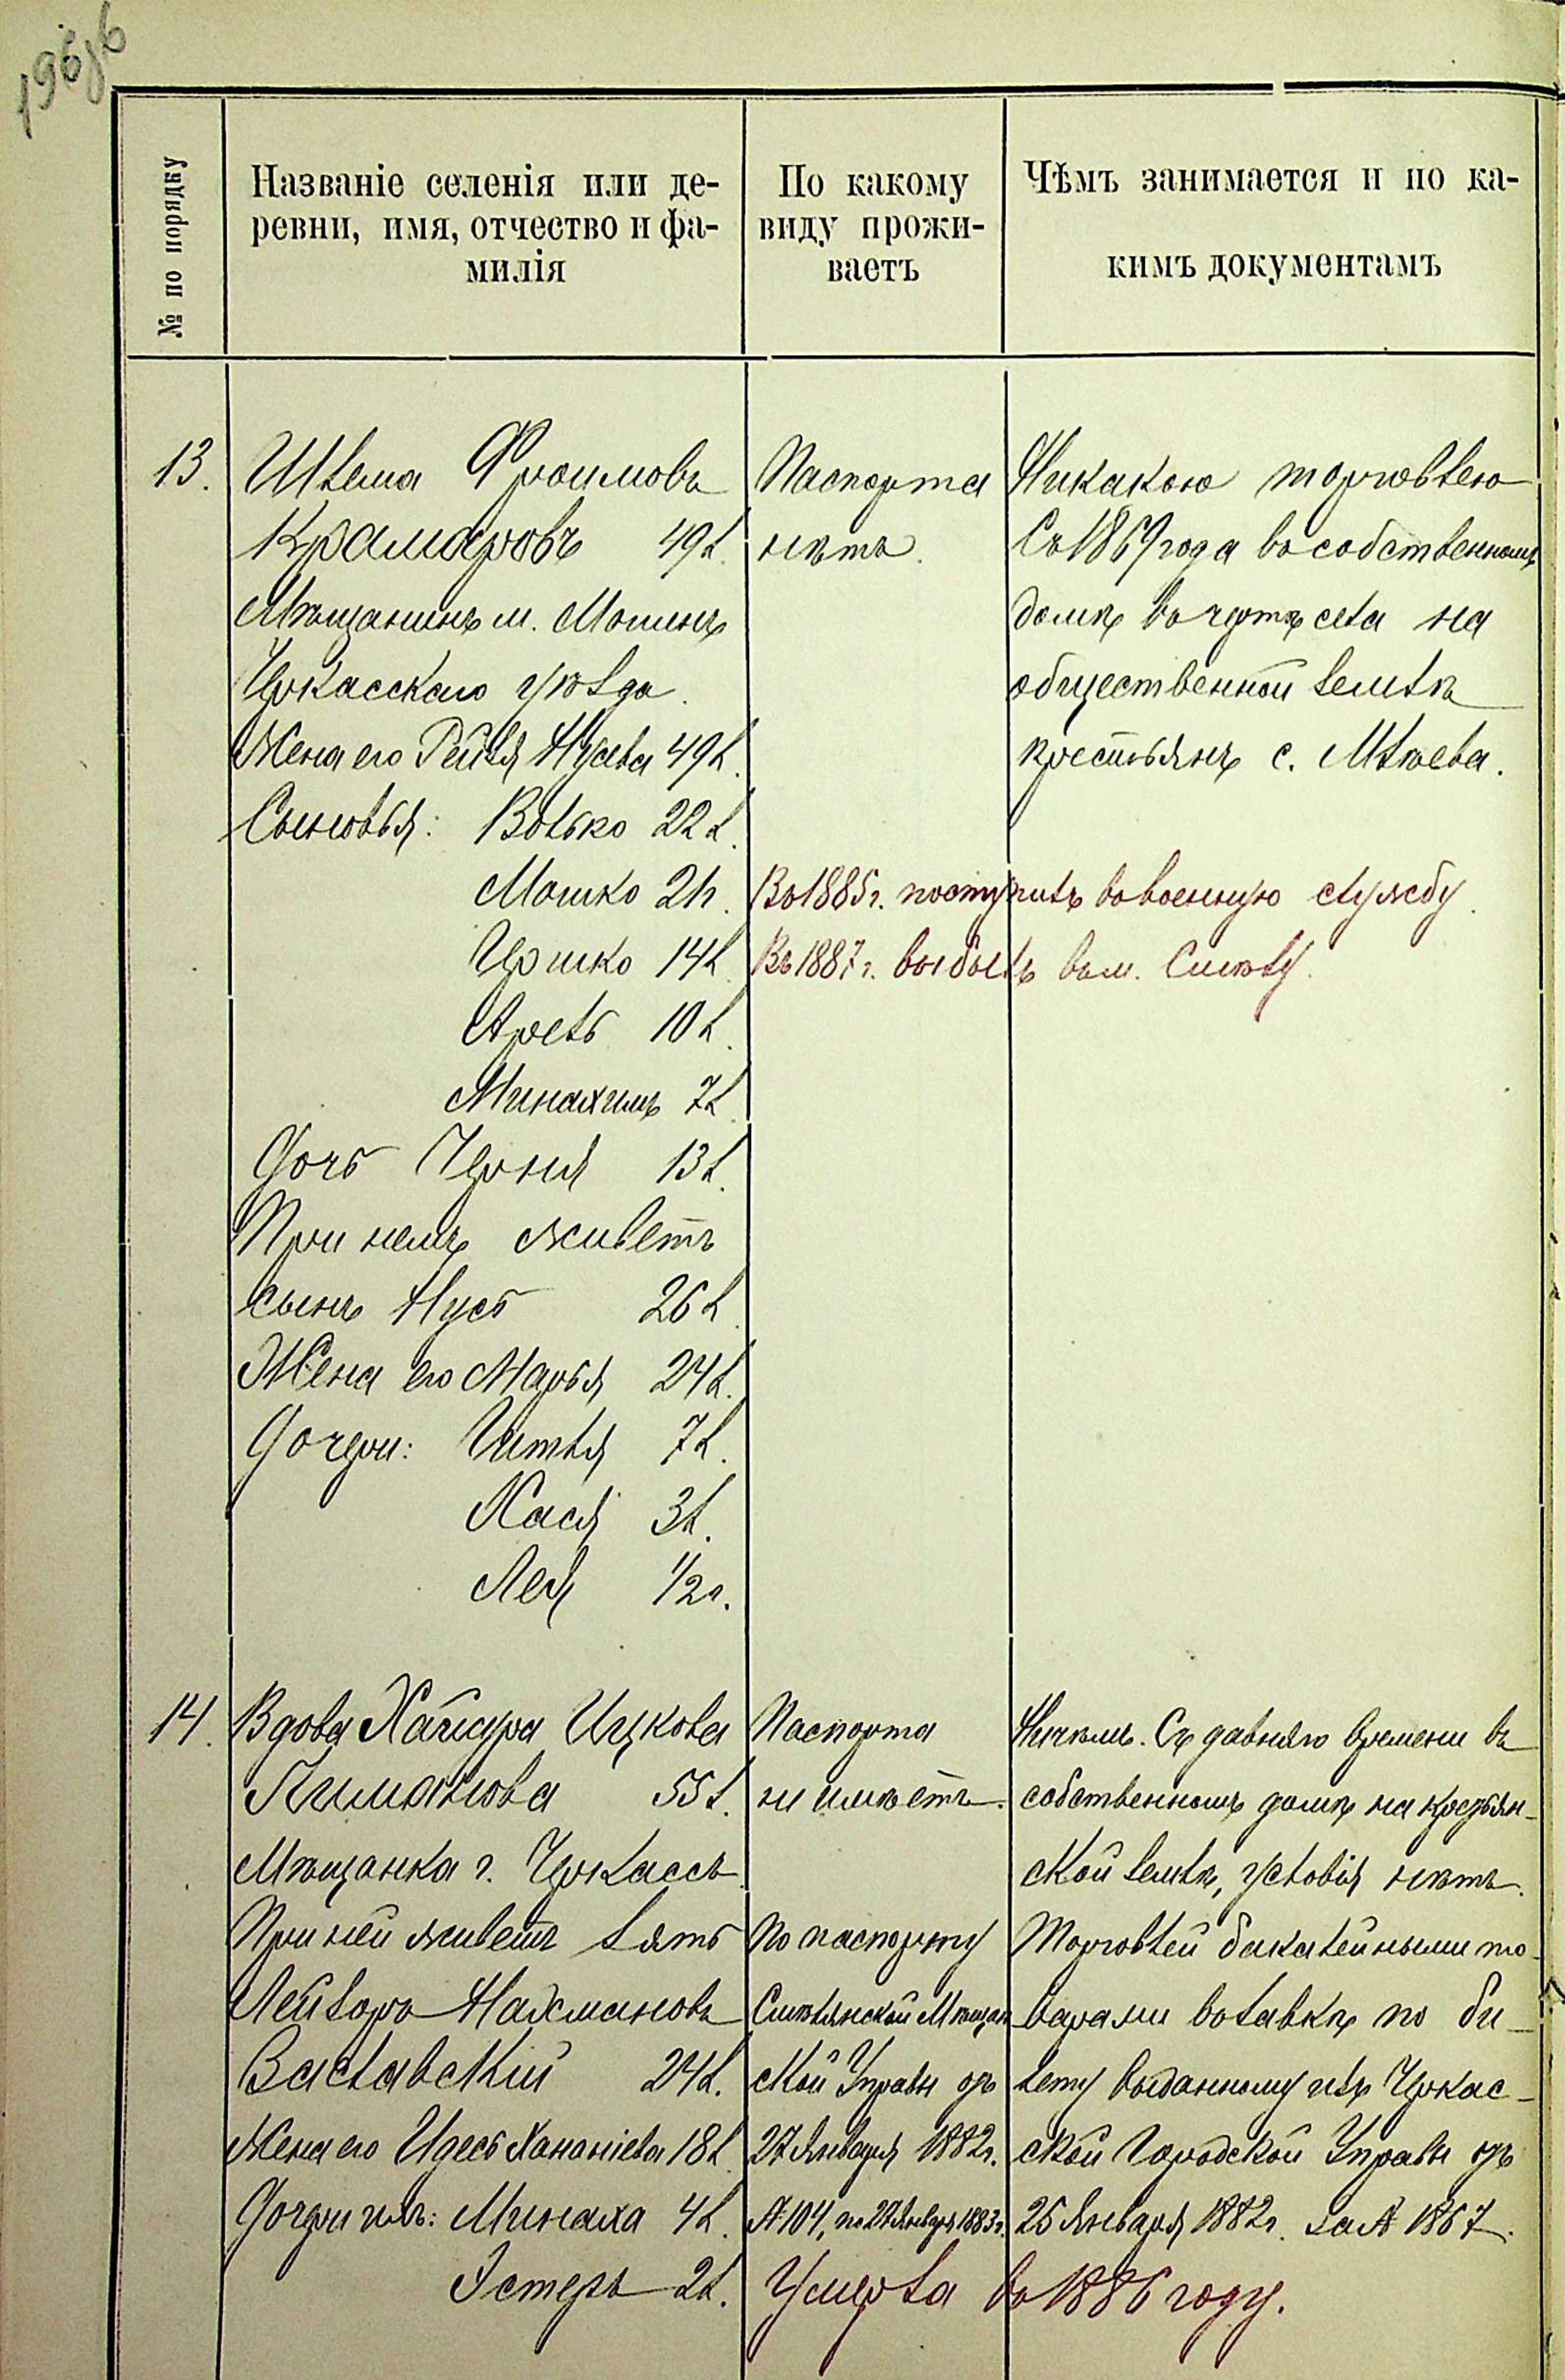 № по порядку
Названіе селенія или де-
ревни, имя, отчество и фа-
милія
По какому
виду прожи-
ваетъ
Чѣмъ занимается и по ка-
кимъ документамъ
13. Шлема Фроимовъ
Крамаровъ 49 л.
Мѣщанинъ м. Мошенъ
Черкасскаго уѣзда.
Жена его Рейзя Нусева 49 л.
Сыновья: Волько 22 л.
Мошко 21 г.
Гершко 14 л.
Арель 10 л.
Минахимъ 7 л.
Дочь Черня 13 л.
При немъ живетъ
сынъ Нусь 26 л.
Жена его Марья 24 л.
Дочери: Гитля 7 л.
Хася 3 л.
Лея 1/2 г.
Паспорта
нѣтъ.
Никакою торговлею
Съ 1869 года въ собственномъ
домѣ въ чертѣ села на
общественной землѣ
крестьянъ с. Млѣева.
Въ 1885 г. поступилъ въ военную службу.
Въ 1887 г. выбылъ въ м. Смѣлу.
14. Вдова Ицкова
55 л.
Мѣщанка г. Черкассъ.
При ней живетъ зять
Лейзоръ Нахмановъ
Заславскій 24 л.
Жена его Идесь Хананіева 18 л.
Дочери ихъ: Минаха 4 л.
Эстеръ 2 л.
Паспорта
не имѣетъ.
По паспорту
Смѣлянской Мѣщан
ской Управы отъ
27 Января 1882 г.
№ 104, по 27 Января 1883 г.
Ничѣмъ. Съ давняго времени въ
собственномъ домѣ на крестьян-
ской землѣ, условія нѣтъ.
Торговлей бакалейными то-
варами въ лавкѣ по би-
лету выданному изъ Черкас-
ской Городской Управы отъ
25 Января 1882 г. за № 1867.
Умерла въ 1886 году.